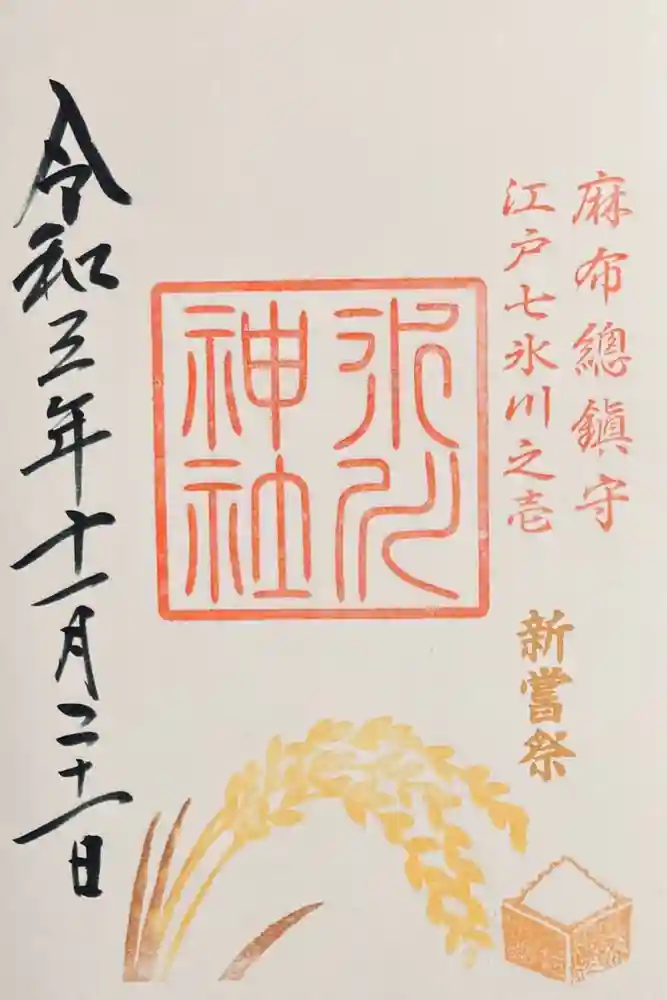 麻布總鎮守
江戸七氷川之壱
新嘗祭
氷川
神社
令和三年十一月二十一日